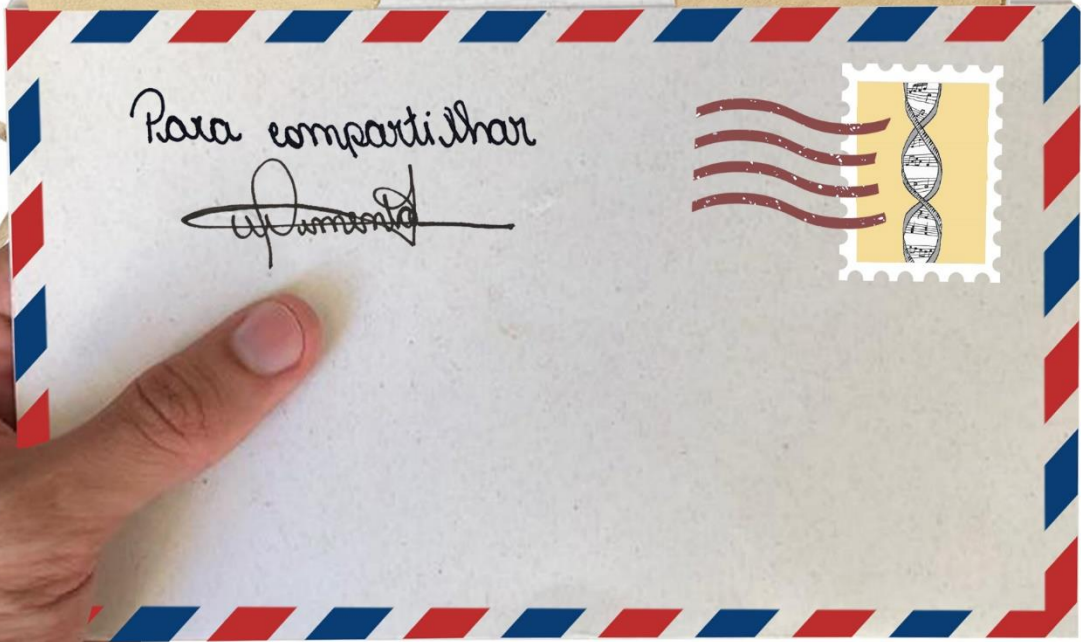 Para compartilhar